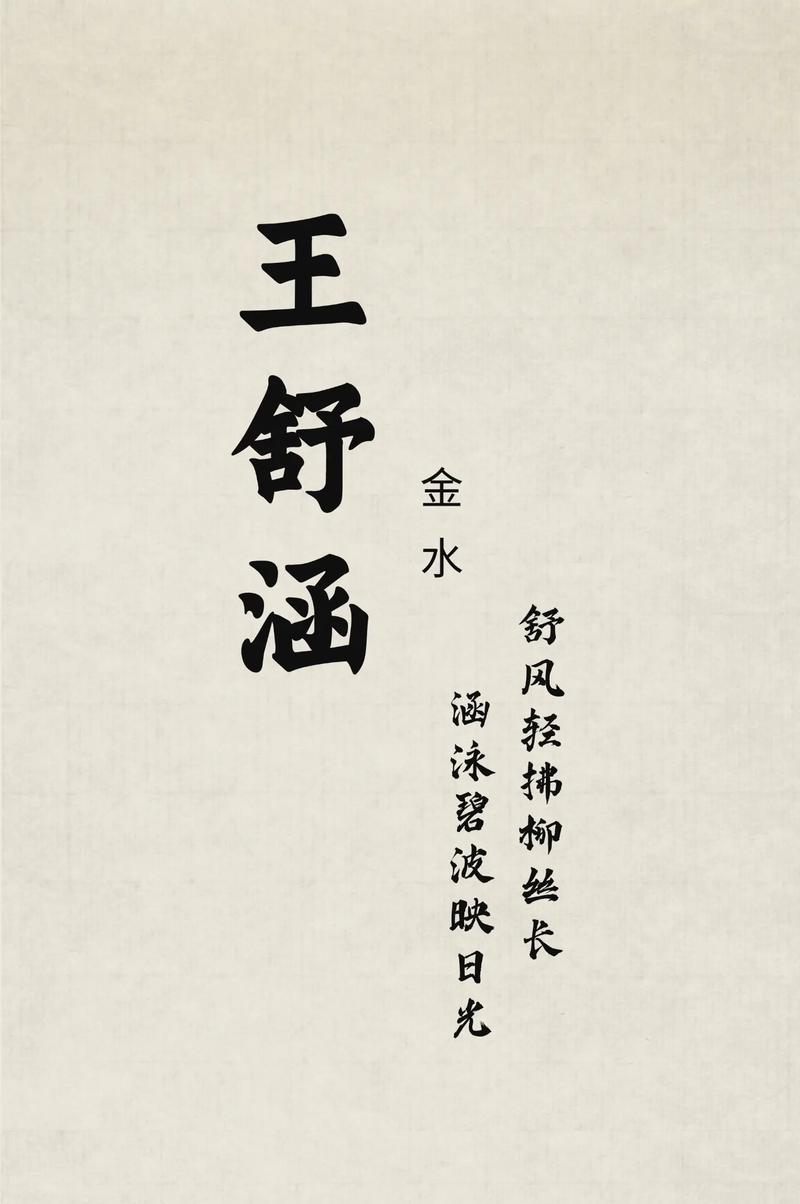 王舒涵
金水
舒风轻拂柳丝长
涵泳碧波映日光